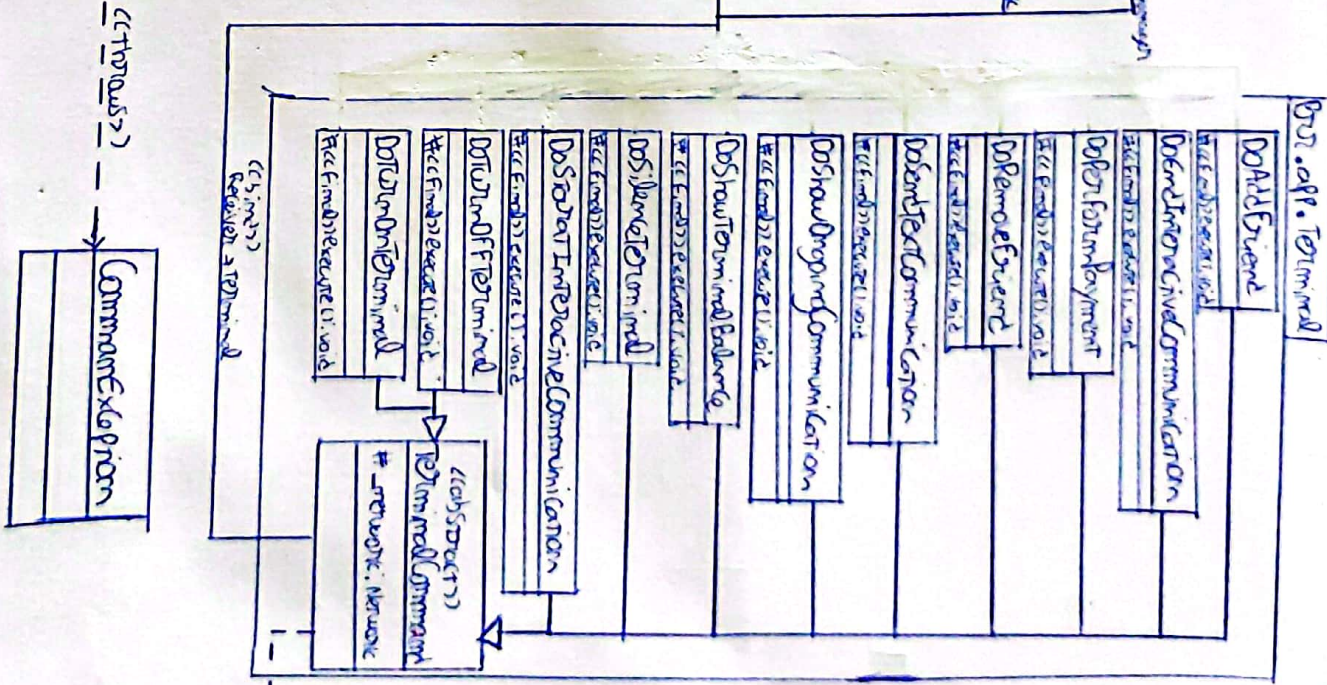 Prr.app.Terminal
DoAddFriend
#<<Final>>execute():void
DoEndInteractiveCommunication
#<<Final>>execute():void
DoPerformPayment
#<<Final>>execute():void
DoRemoveFriend
#<<Final>>execute():void
DoSendTextCommunication
#<<Final>>execute():void
DoShowOngoingCommunication
#<<Final>>execute():void
DoShowTerminalBalance
#<<Final>>execute():void
DoSilenceTerminal
#<<Final>>execute():void
DoStartInteractiveCommunication
#<<Final>>execute():void
DoTurnOffTerminal
#<<Final>>execute():void
DoTurnOnTerminal
#<<Final>>execute():void
<<abstract>>
TerminalCommand
#_network:Network
<<bind>>
Receiver->Terminal
<<throws>>
CommandException